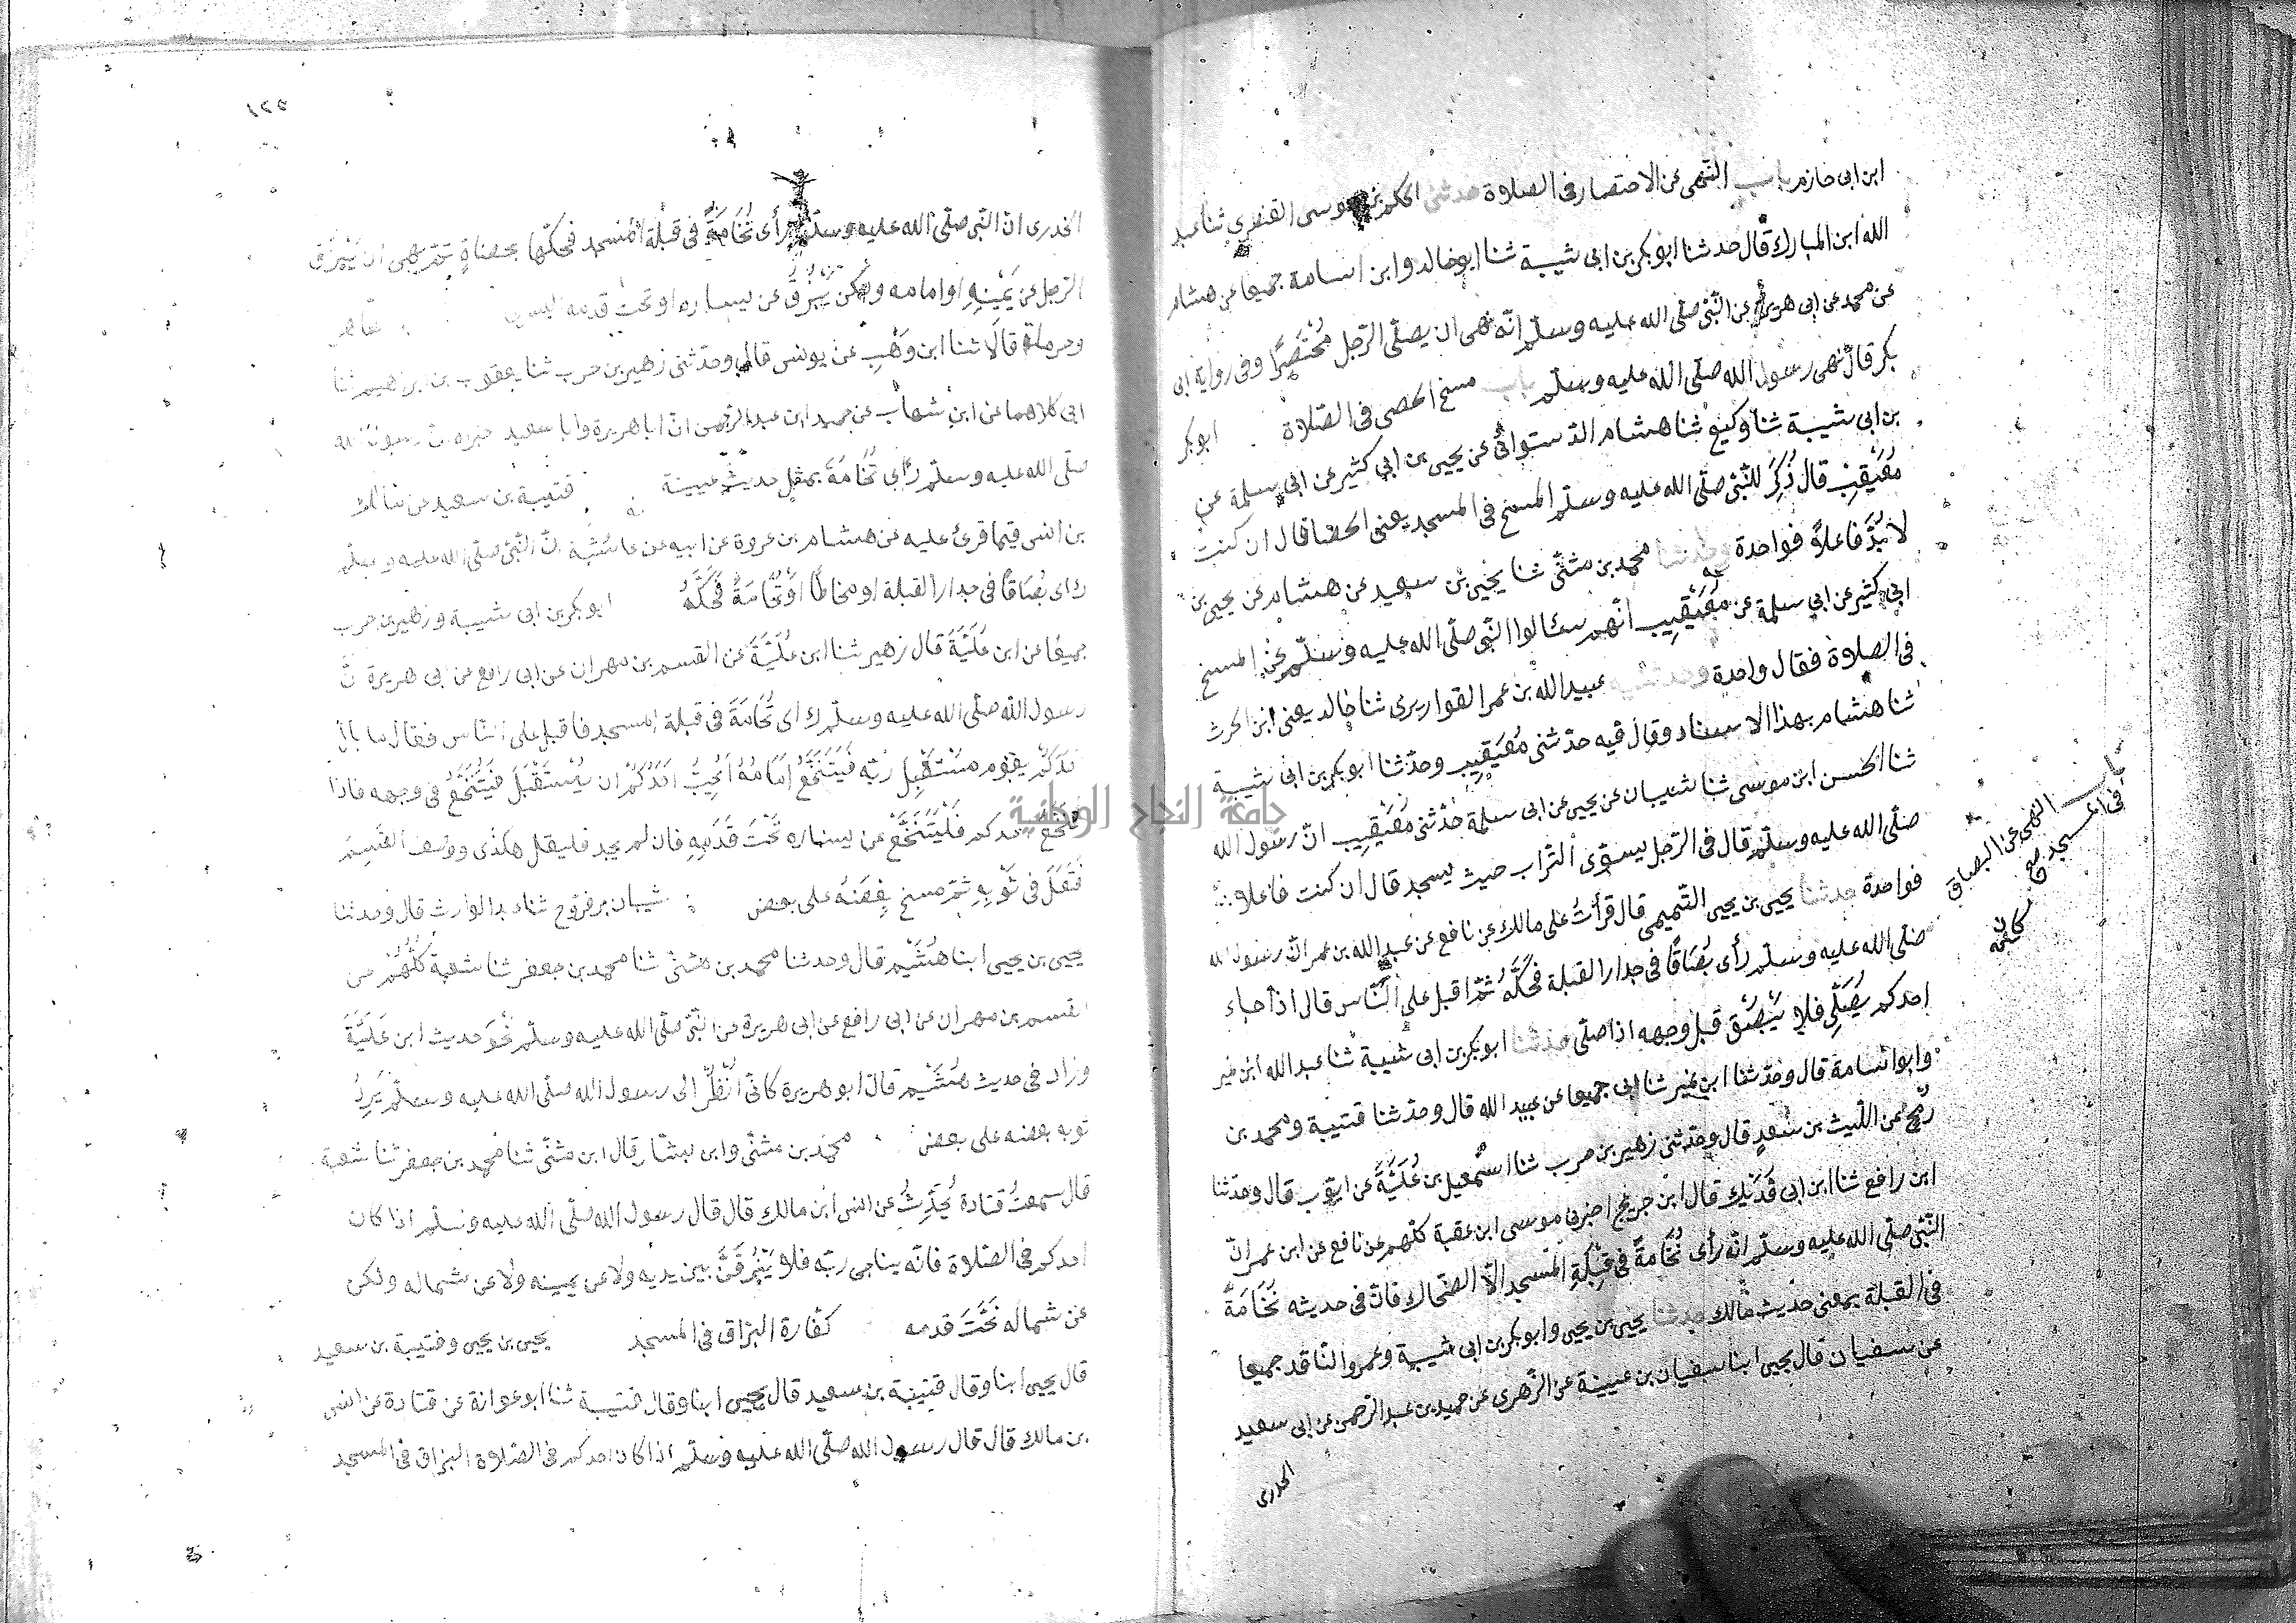 ابن ابى حازم باب النهى عن الاختصار فى الصلاة حدثنى الحكم بن موسى القنطرى ثنا عبد
الله ابن المبارك قال حدثنا ابو بكر بن ابى شيبة ثنا ابو خالد وابن اسامة جميعا عن هشام
عن محمد عن ابى هريرة عن النّبىّ صلّى الله عليه وسلّم انّه نهى ان يصلّى الرّجل مُخْتَصِرًا وفى رواية ابى
بكر قال نهى رسول الله صلّى الله عليه وسلّم باب مسح الحصى فى الصّلاة ابو بكر
بن ابى شيبة ثنا وكيع ثنا هشام الدّستوائى عن يحيى بن ابى كثير عن ابى سلمة عن
مُعَيْقِبٍ قال ذُكِرَ للنّبىّ صلّى الله عليه وسلّم المسح فى المسجد يعنى الحصا قال ان كنت
لا بُدَّ فاعلاً فواحدة وحدثنا محمد بن مثنّى ثنا يحيى بن سعيد عن هشام عن يحيى بن
ابى كثير عن ابى سلمة عن مُعَيْقِيب انّهم سئالوا النّبى صلّى الله عليه وسلّم عن المسح
فى الصلاة فقال واحدة وحدثنيه عبيد الله بن عمر القواريرى ثنا خالد يعنى ابن الحرث
ثنا هشام بهذا الاسناد وقال فيه حدّثنى مُعَيْقِيب وحدّثنا ابو بكر بن ابى شيبة
ثنا الحسن ابن موسى ثنا شيبان عن يحيى عن ابى سلمة حدّثنى مُعَيْقِيب انّ رسول الله
صلّى الله عليه وسلّم قال فى الرّجل يسوّى التّراب حيث يسجد قال ان كنت فاعلا
فواحدة حدثنا يحيى بن يحيى التّميمى قال قرأتُ على مالك عن نافع عن عبد الله بن عمر انّ رسول الله
صلّى الله عليه وسلّم رأى بُصَاقًا فى جدار القبلة فحكَّهُ ثُمّ اقبل على النّاس قال اذا جاء
احدكم يُصَلِّى فلا يَبْصُقْ قبل وجهه اذا صلّى حدثنا ابو بكر بن ابى شيبة ثنا عبد الله ابن نمير
وابو اسامة قال وحدّثنا ابن نمير ثنا ابى جميعا عن عبيد الله قال وحدّثنا قتيبة ومحمد بن
رُمْح عن اللّيث بن سَعدٍ قال وحدّثنى زهير بن حرب ثنا اسمعيل بن عُلَيَّةَ عن ايّوب قال وحدّثنا
ابن رافع ثنا ابن ابى فُدَيْك قال ابن جريج اخبرنى موسى ابن عقبة كلّهم عن نافع عن ابن عمر انّ
النّبىّ صلّى الله عليه وسلّم انّه رأى نُخَامَةً فى قِبْلَةِ المسجد الاّ الضّحاك فانّ فى حديثه نُخَامَةً
فى القبلة بمعنى حديث مالك حدثنا يحيى بن يحيى وابو بكر بن ابى شيبة وعمرو النّاقد جميعا
عن سفيان قال يحيى ابنا سفيان بن عيينة عن الزّهرى عن حميد بن عبد الرّحمن عن ابى سعيد
الخدرى
باب النهى عن البصاق
فى المسجد صح
١٢٥
الخدرى انّ النّبى صلّى الله عليه وسلّم رأى نُخَامَةً فى قبلة المسجد فحكّها بحصاةٍ ثمّ نهى ان يَبْزُقَ
الرّجل عن يَمِيْنِهِ او امامه ولكن يَبْزُقُ عن يساره او تحت قدمه اليسرى
وحرملة قالا ثنا ابن وَهْبٍ عن يونس قال وحدّثنى زهير بن حرب ثنا يعقوب بن ابراهيم ثنا
ابى كلاهما عن ابن شهاب عن حميد ابن عبد الرّحمن انّ ابا هريرة وابا سعيد
صلّى الله عليه وسلّم رأى نُخَامَةً بمثل حديث عيينة قتيبة بن سعيد عن مالك
بن انس فيما قرئ عليه عن هشام بن عروة عن ابيه عن عائشة انّ النّبىّ صلّى الله عليه وسلّم
رأى بُصَاقًا فى جدار القبلة او مخاطًا او نُخَامَةً فحكَّهُ ابو بكر بن ابى شيبة وزهير بن حرب
جميعًا عن ابن عُلَيَّةَ قال زهير ثنا ابن عُلَيَّةَ عن القسم بن مهران عن ابى رافع عن ابى هريرة انّ
رسول الله صلّى الله عليه وسلّم رأى نُخَامَةً فى قبلة المسجد فاقبل على النّاس فقال ما بال
احدكم يقوم مستقبل ربّه فَيَتَنَخَّعُ امَامَهُ اَيُحِبُّ احَدُكُمْ ان يُسْتَقْبَلَ فَيُتَنَخَّعُ فى وجهه فاذا
تنخّع احدكم فَلْيَتَنَخَّعْ عن يساره تَحْتَ قَدَمِهِ فان لم يجد فليقل هكذى ووصف القَسِم
فَتَفَلَ فى ثَوْبِهِ ثمّ مسح بعضَهُ على بعض شيبان بن فرّوخ ثنا عبد الوارث قال وحدثنا
يحيى بن يحيى ابنا هُشَيْم قال وحدثنا محمد بن مثنّى ثنا محمد بن جعفر ثنا شعبة كُلُّهُمْ عن
القسم بن مهران عن ابى رافع عن ابى هريرة عن النّبىّ صلّى الله عليه وسلّم نَحْوَ حديث ابن عُلَيَّةَ
وزاد فى حديث هُشَيْم قال ابو هريرة كانّى اَنْظُرُ الى رسول الله صلّى الله عليه وسلّم يَرُدُّ
ثوبه بعضه على بعض محمّد بن مثنّى وابن بشّار قال ابن مثنّى ثنا محمد بن جعفر ثنا شعبة
قال سمعتُ قتادة يُحَدِّثُ عن انس ابن مالك قال قال رسول الله صلّى الله عليه وسلّم اذا كان
احدكم فى الصّلاة فانّه يناجى ربّه فلا يَبْزُقَنَّ بين يديه ولا عن يمينه ولا عن شماله ولكن
عن شماله تَحْتَ قدمه كفّارة البزاق فى المسجد يحيى بن يحيى وقتيبة بن سعيد
قال يحيى ابنا وقال قتيبة بن سعيد قال يحيى ابنا وقال قتيبة ثنا ابو عوانة عن قتادة عن انس
بن مالك قال قال رسول الله صلّى الله عليه وسلّم اذا كان احدكم فى الصّلاة البزاق فى المسجد
جامعة النجاح الوطنية